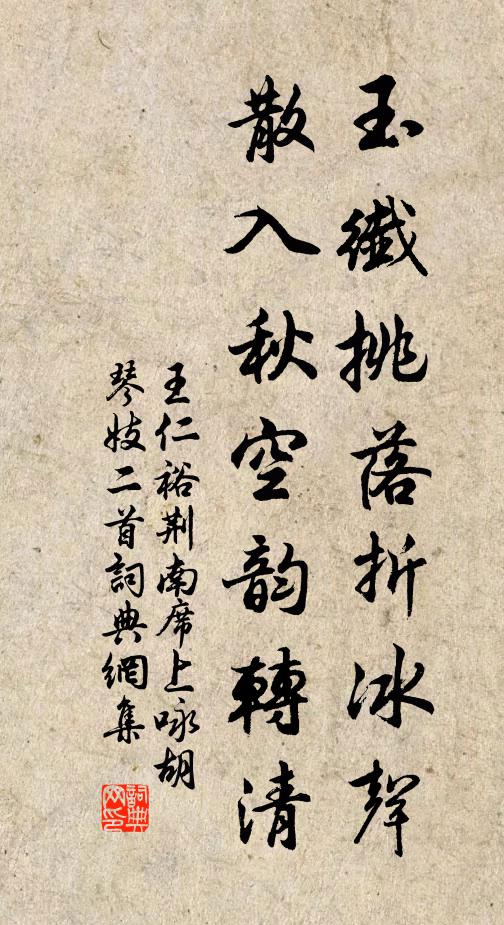 玉纖挑落折冰聲
散入秋空韵轉清
王仁裕荆南席上咏胡
琴妓二首詞典網集
詞典網印